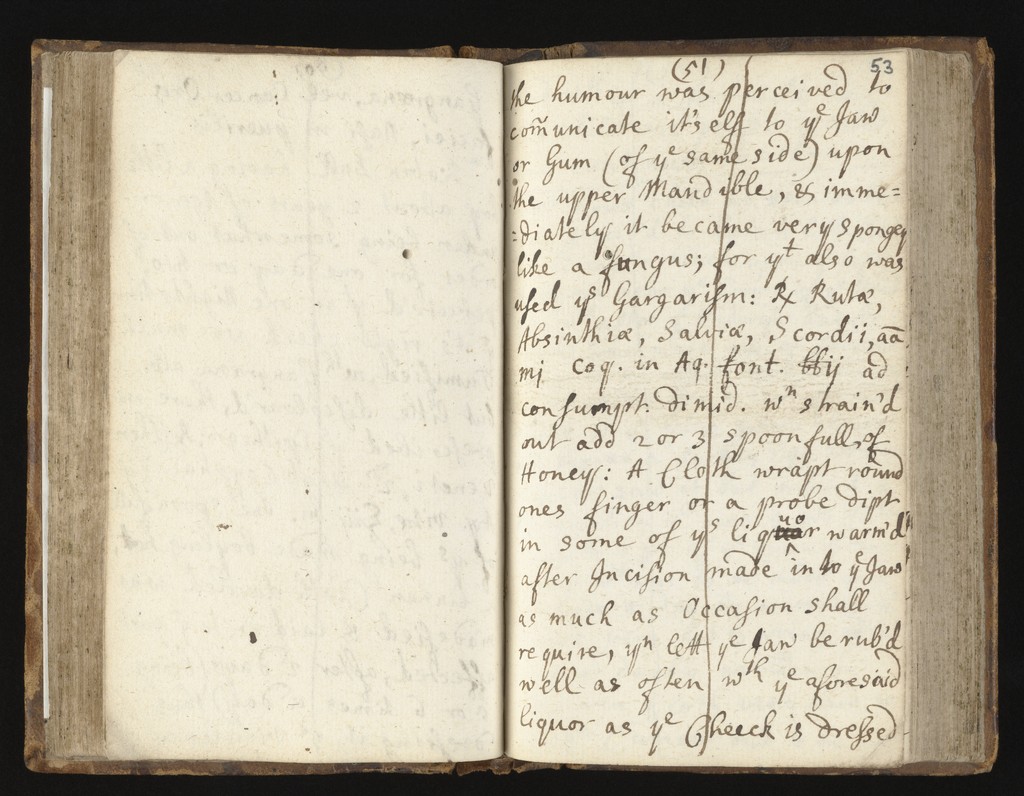 (51)
53
the humour was perceived to
com̃unicate it's elf to yᵉ Jaw
or Gum (of yᵉ same side) upon
the upper Mandible, & imme=
=diately it became very spongey
like a fungus; for yᵗ also was
used yˢ Gargarism: ℞ Rutæ,
Absinthiæ, Salviæ, Scordii, aã
mj coq. in Aq. font. ℔ij ad
consumpt. dimid. wⁿ strain'd
out add 2 or 3 spoonfulls of
Honey: A Cloth wrapt round
ones finger or a probe dipt
in some of yˢ liquor warm'd
after Incision made into yᵉ Jaw
as much as Occasion shall
require, yⁿ lett yᵉ Jaw be rub'd
well as often wᵗʰ yᵉ aforesaid
liquor as yᵉ Cheeck is dressed